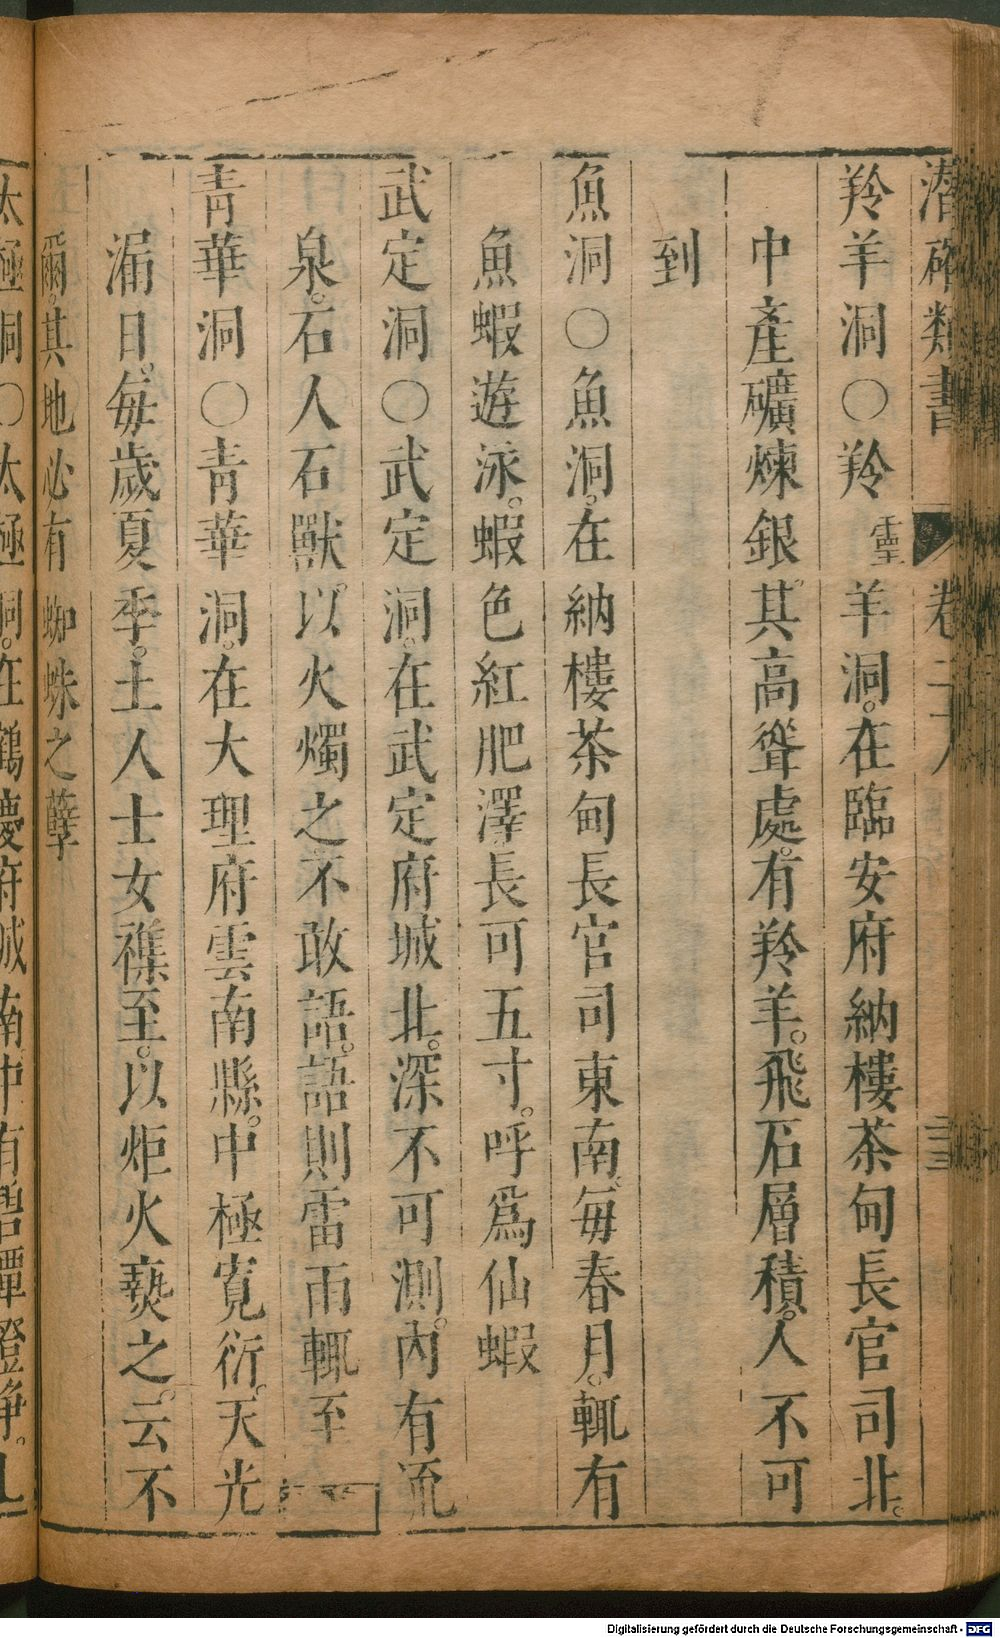 潛確類書 卷二十八 三三
羚羊洞〇羚靈羊洞。在臨安府納樓茶甸長官司北。
中產礦煉銀。其高聳處。有羚羊。飛石層積。人不可
到
魚洞〇魚洞。在納樓茶甸長官司東南。每春月。輒有
魚蝦遊泳。蝦色紅肥澤。長可五寸。呼爲仙蝦
武定洞〇武定洞。在武定府城北。深不可測。內有流
泉。石人石獸。以火燭之。不敢語。語則雷雨輒至
青華洞〇青華洞。在大理府雲南縣。中極寬衍。天光
漏日。每歲夏季。土人士女襍至。以炬火爇之。云不
爾。其地必有蜘蛛之孽
太極洞〇太極洞。在鶴慶府城南中有碧潭澄淨。
Digitalisierung gefördert durch die Deutsche Forschungsgemeinschaft - DFG